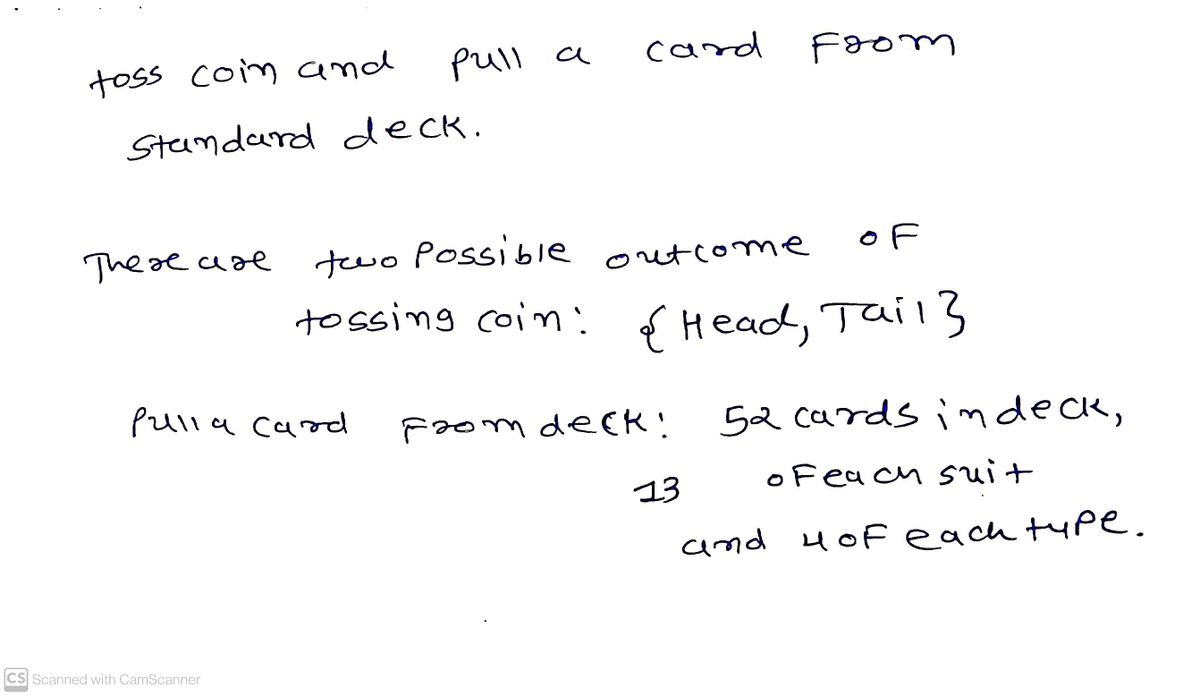 toss coin and pull a card from
standard deck.
There are two possible outcome of
tossing coin: {Head, Tail}
pull a card from deck: 52 cards in deck,
13 of each suit
and 4 of each type.
CS Scanned with CamScanner